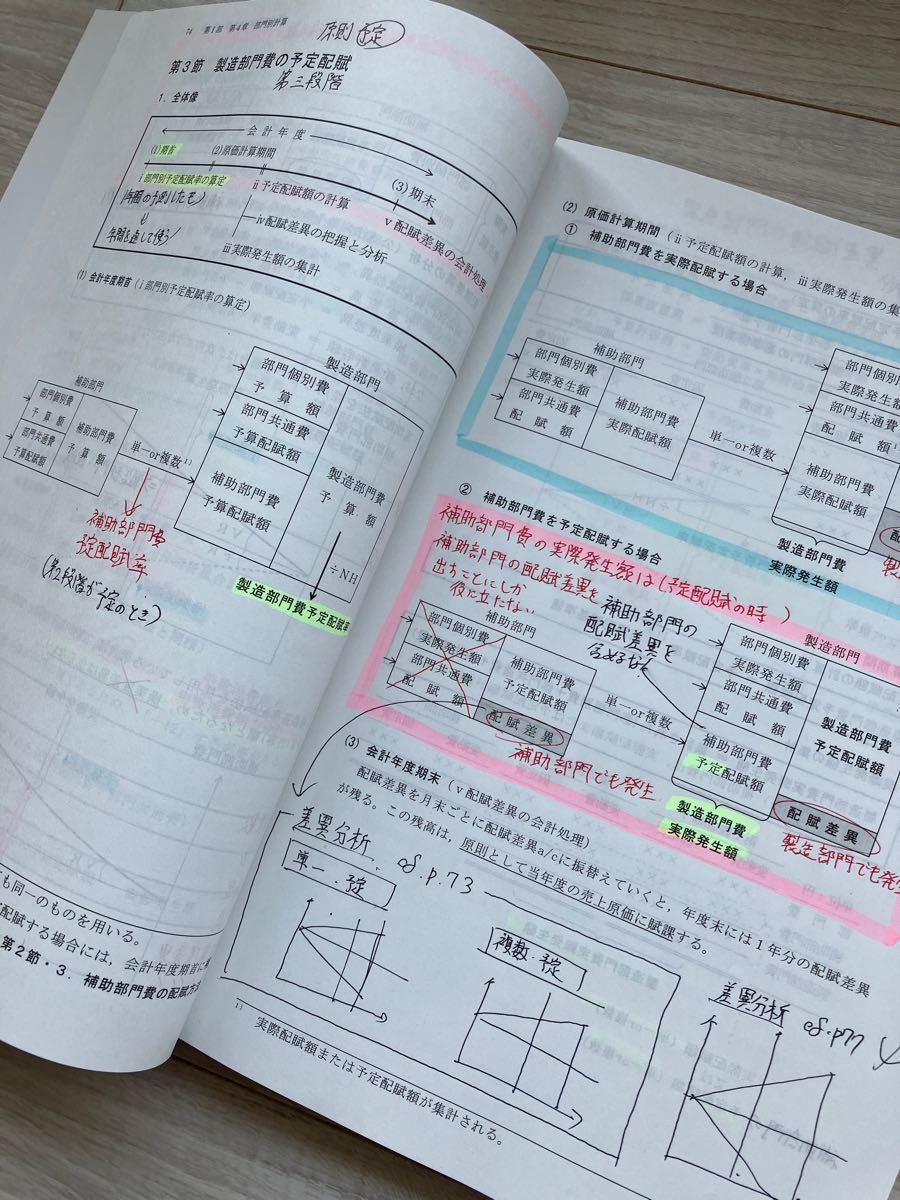 74 第Ⅰ部 第4章 部門別計算
原則 予定
第3節 製造部門費の予定配賦
第三段階
1. 全体像
会計年度
(1)期首
(2)原価計算期間
(3)期末
ⅰ部門別予定配賦率の算定
ⅱ予定配賦額の計算
ⅴ配賦差異の会計処理
ⅳ配賦差異の把握と分析
ⅲ実際発生額の集計
年間を通して使う!
(1) 会計年度期首(ⅰ部門別予定配賦率の算定)
補助部門
部門個別費
予算額
部門共通費
予算配賦額
補助部門費
予算額
単一or複数1)
製造部門
部門個別費
予算額
部門共通費
予算配賦額
補助部門費
予算配賦額
製造部門費
予算額
÷NH
製造部門費予定配賦率
補助部門費
予定配賦率
(第2段階が予定のとき)
も同一のものを用いる。
配賦する場合には,会計年度期首に
第2節・3. 補助部門費の配賦方法
(2) 原価計算期間(ⅱ予定配賦額の計算,ⅲ実際発生額の集
① 補助部門費を実際配賦する場合
補助部門
部門個別費
実際発生額
部門共通費
配賦額
補助部門費
実際配賦額
単一or複数
部門個別費
実際発生額
部門共通費
配賦額
補助部門費
実際配賦額
製造部門費
実際発生額
② 補助部門費を予定配賦する場合
補助部門費の実際発生額は(予定配賦の時)
補助部門の配賦差異を
出すことにしか
役に立たない
補助部門の
配賦差異を
含めない
補助部門
部門個別費
実際発生額
部門共通費
配賦額
補助部門費
予定配賦額
配賦差異
単一or複数
補助部門でも発生
製造部門
部門個別費
実際発生額
部門共通費
配賦額
補助部門費
予定配賦額
製造部門費
予定配賦額
配賦差異
製造部門費
実際発生額
製造部門でも発生
(3) 会計年度期末(ⅴ配賦差異の会計処理)
配賦差異を月末ごとに配賦差異a/cに振替えていくと,年度末には1年分の配賦差異
が残る。この残高は,原則として当年度の売上原価に賦課する。
差異分析
p.73
単一・予定
複数・予定
差異分析
p77
1) 実際配賦額または予定配賦額が集計される。